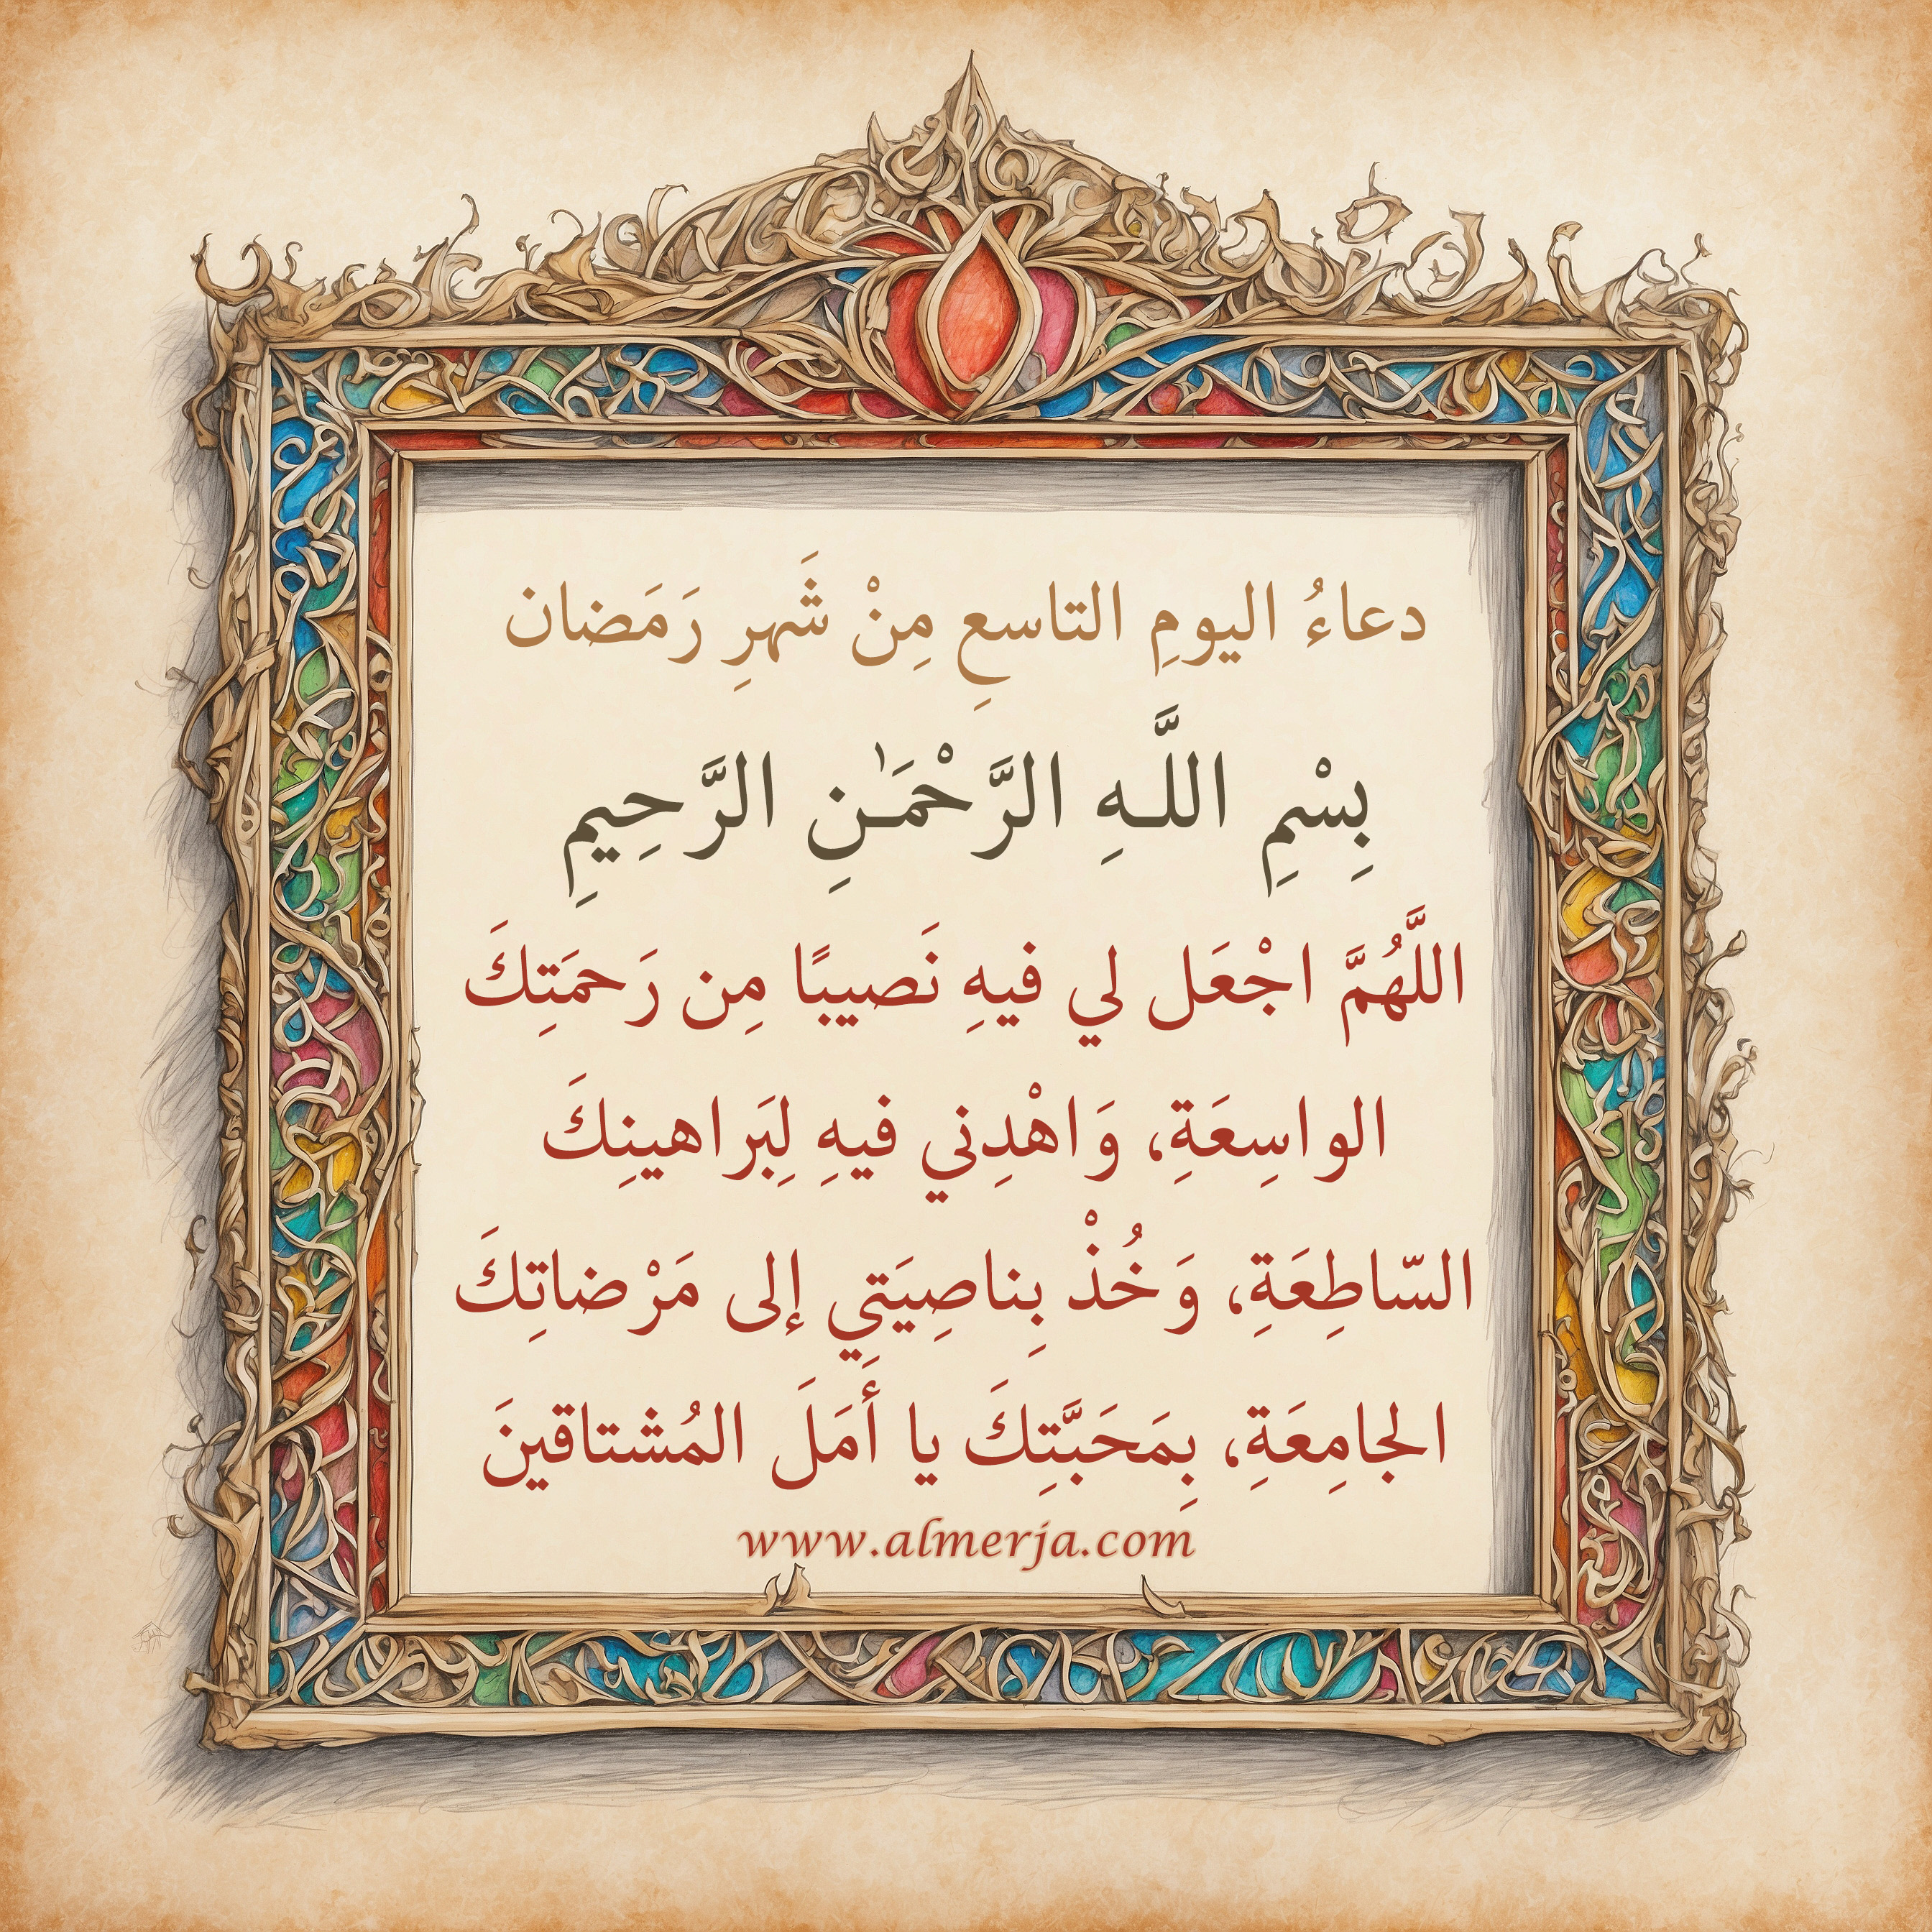 دعاءُ اليومِ التاسعِ مِنْ شَهرِ رَمَضان
بِسْمِ اللَّـهِ الرَّحْمَـٰنِ الرَّحِيمِ
اللَّهُمَّ اجْعَل لي فيهِ نَصيبًا مِن رَحمَتِكَ
الواسِعَةِ، وَاهْدِني فيهِ لِبَراهينِكَ
السّاطِعَةِ، وَخُذْ بِناصِيَتي إلى مَرْضاتِكَ
الجامِعَةِ، بِمَحَبَّتِكَ يا أَمَلَ المُشتاقينَ
www.almerja.com